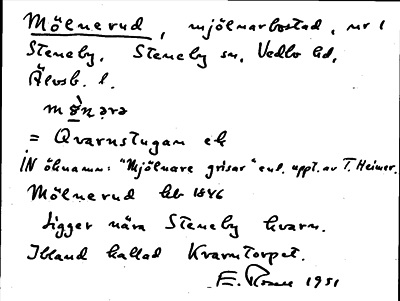 Mölnerud, mjölnarbostad, nr 1
Steneby, Steneby sn, Vedbo hd,
Älvsb. l.
= Qvarnstugan ek
IN öknamn: "Mjölnare grisar" enl. uppt. av T. Heimer.
Mölnerud hb 1846
Ligger nära Steneby kvarn.
Ibland kallad Kvarntorpet.
E. 1951